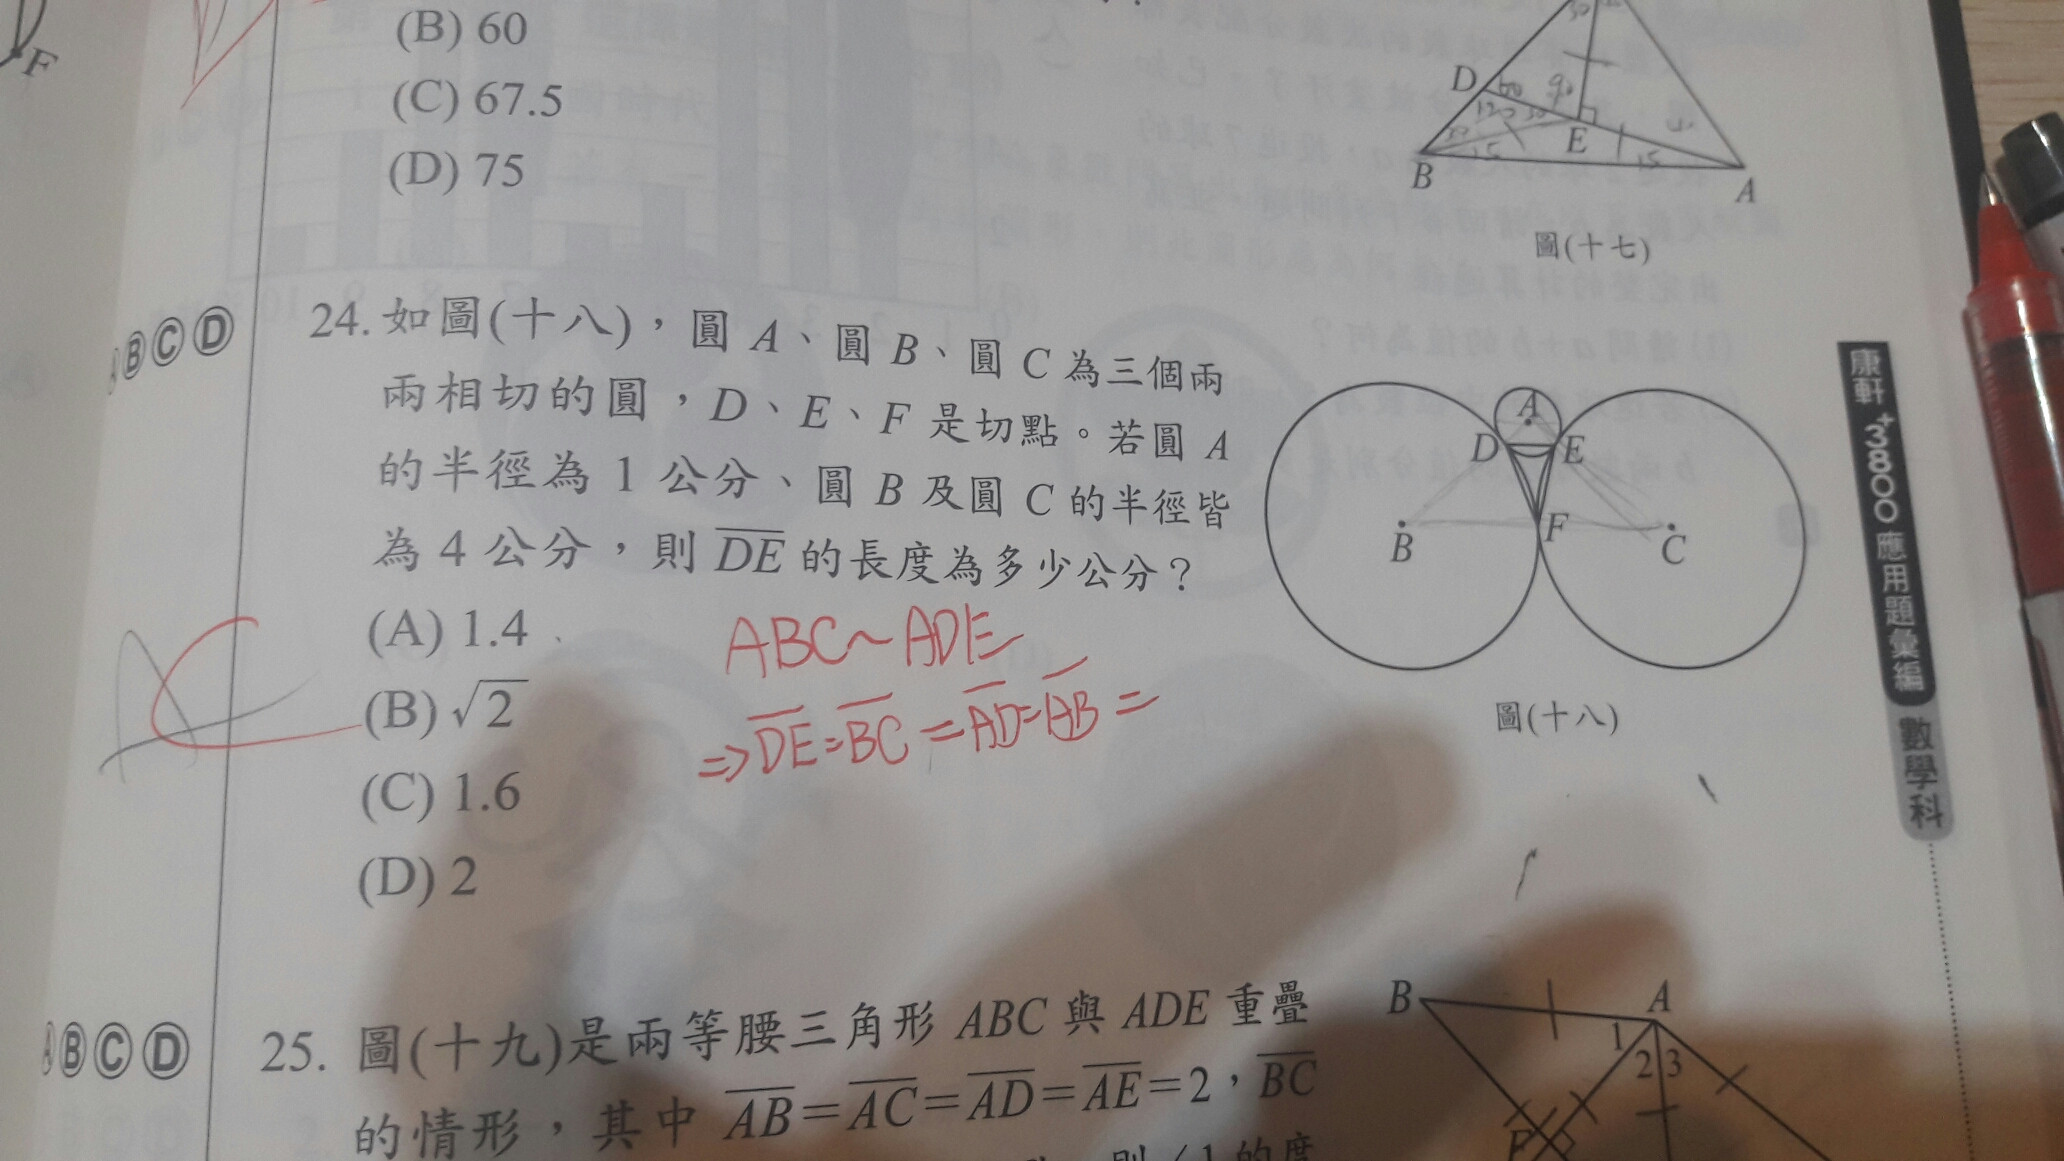 F
(B) 60
(C) 67.5
(D) 75
D
E
B
A
圖(十七)
B C D
24. 如圖(十八)，圓 A、圓 B、圓 C 為三個兩
兩相切的圓，D、E、F 是切點。若圓 A
的半徑為 1 公分、圓 B 及圓 C 的半徑皆
為 4 公分，則 DE 的長度為多少公分？
(A) 1.4
(B) √2
(C) 1.6
(D) 2
ABC~ADE
⇒DE=BC=AD=AB=
A
D
E
F
B
C
圖(十八)
康軒 3800 應用題彙編 數學科
B C D
25. 圖(十九)是兩等腰三角形 ABC 與 ADE 重疊
的情形，其中 AB=AC=AD=AE=2，BC
B
A
1
2 3
F